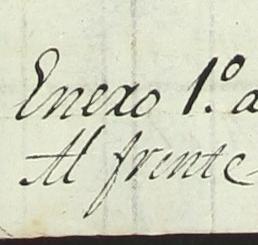 Enexo 1.º a
Al frente